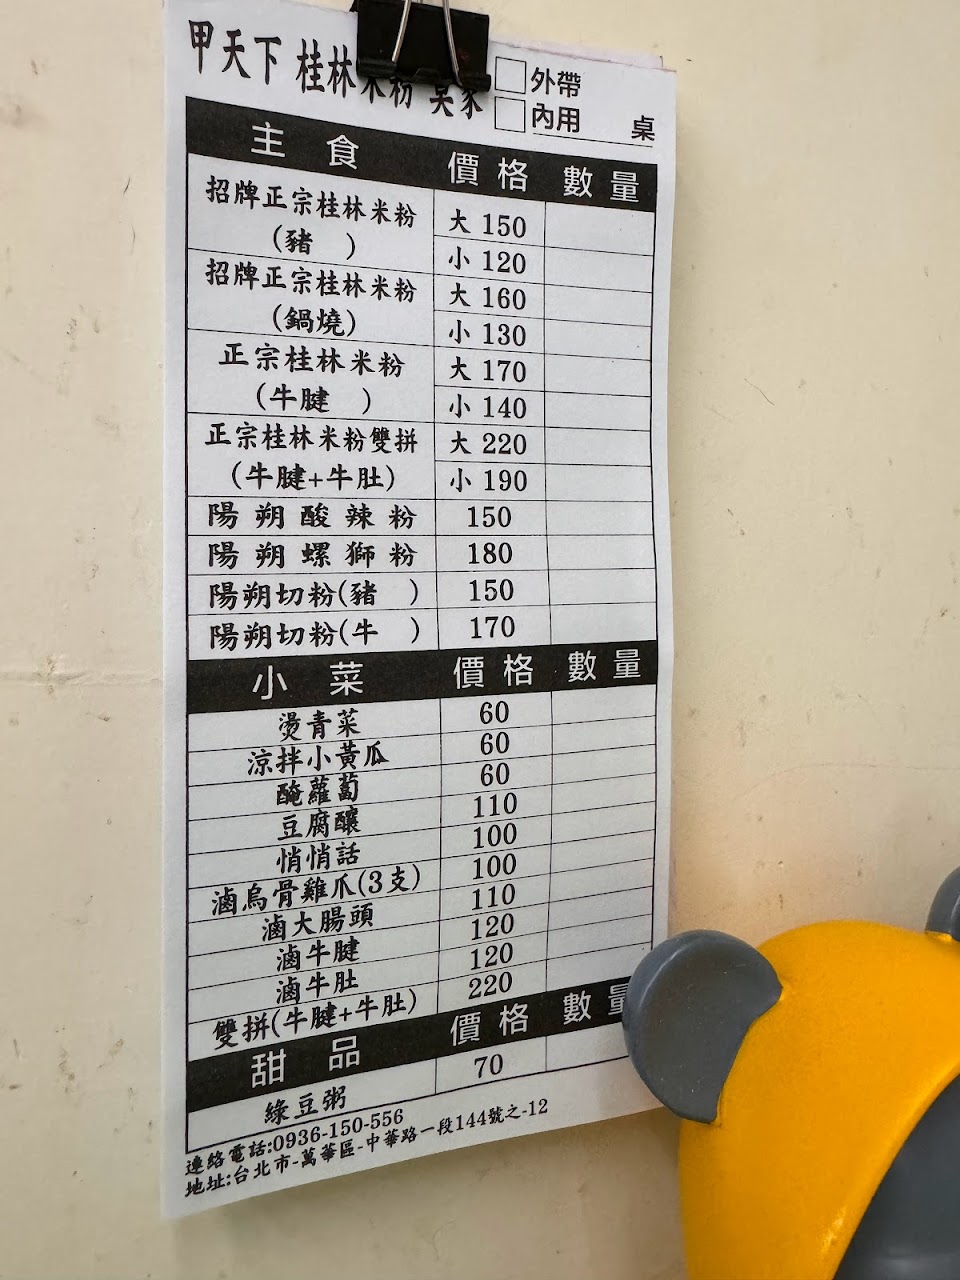 甲天下 桂林米粉 莫家
□外帶
□內用 桌
主食 價格 數量
招牌正宗桂林米粉
(豬 )
大 150
小 120
招牌正宗桂林米粉
(鍋燒)
大 160
小 130
正宗桂林米粉
(牛腱 )
大 170
小 140
正宗桂林米粉雙拼
(牛腱+牛肚)
大 220
小 190
陽朔酸辣粉 150
陽朔螺獅粉 180
陽朔切粉(豬 ) 150
陽朔切粉(牛 ) 170
小菜 價格 數量
燙青菜 60
涼拌小黃瓜 60
醃蘿蔔 60
豆腐釀 110
悄悄話 100
滷烏骨雞爪(3支) 100
滷大腸頭 110
滷牛腱 120
滷牛肚 120
雙拼(牛腱+牛肚) 220
甜品 價格 數量
綠豆粥 70
連絡電話:0936-150-556
地址:台北市-萬華區-中華路一段144號之-12